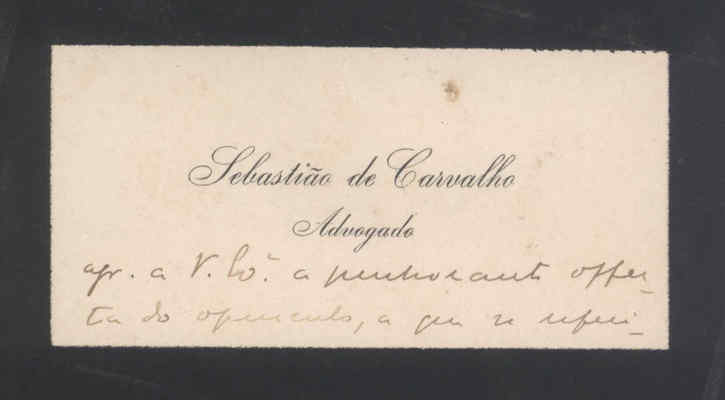 Sebastião de Carvalho
Advogado
agr. a V. Exª. a penhorante offer-
ta do opusculo, a que se referi-